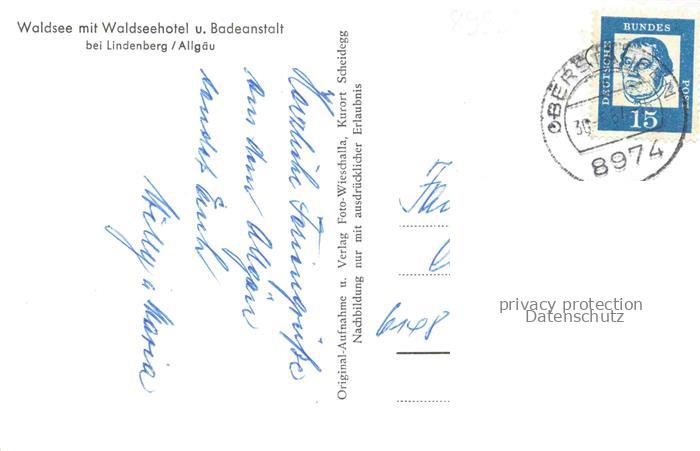 Waldsee mit Waldseehotel u. Badeanstalt
bei Lindenberg / Allgäu
Herzliche Feriengrüße
aus dem Allgäu
sendet Euch
Willy u Maria
Original-Aufnahme u. Verlag Foto-Wieschalla, Kurort Scheidegg
Nachbildung nur mit ausdrücklicher Erlaubnis
DEUTSCHE
BUNDES
POST
15
8974
6148
privacy protection
Datenschutz